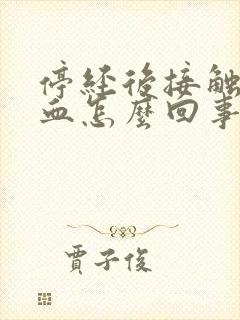 停經後接觸
血怎麼回事
賈子俊